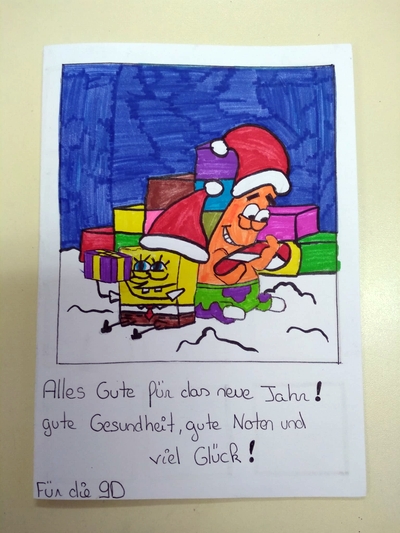 Alles Gute für das neue Jahr!
gute Gesundheit, gute Noten und
viel Glück!
Für die 9D